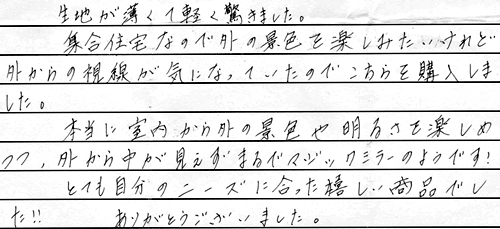 生地が薄くて軽く驚きました。
集合住宅なので外の景色を楽しみたいけれど
外からの視線が気になっていたのでこちらを購入しま
した。
本当に室内から外の景色や明るさを楽しめ
つつ、外から中が見えずまるでマジックミラーのようです!
とても自分のニーズに合った嬉しい商品でし
た!! ありがとうございました。